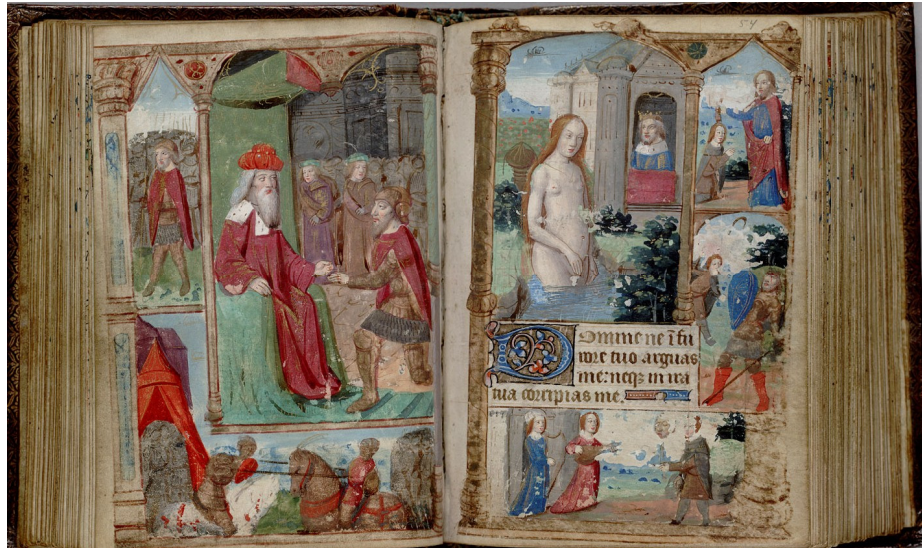 54
Domine ne i fu
rore tuo arguas
me: neqz in ira
tua corripias me.